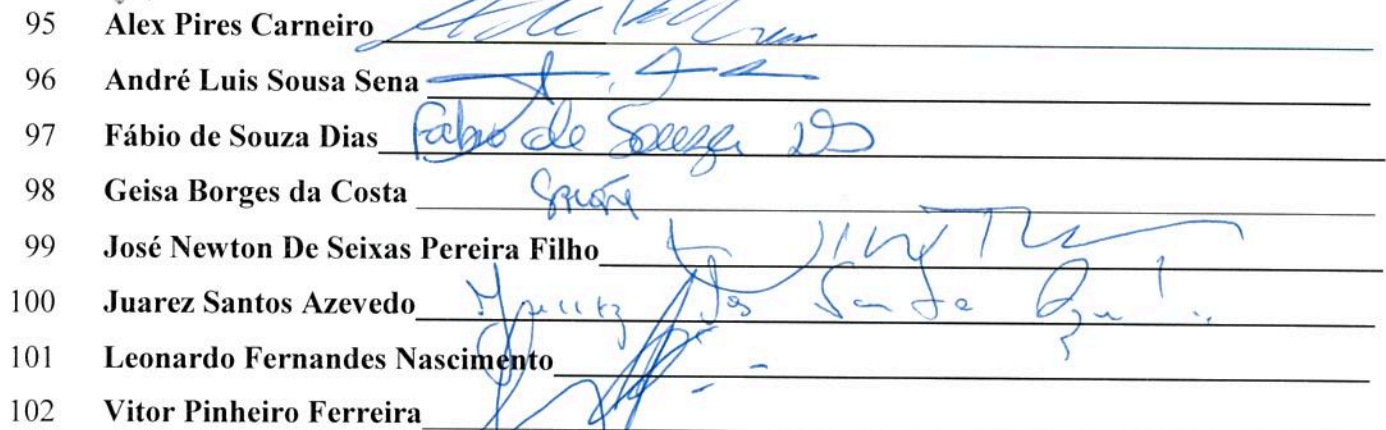 95 Alex Pires Carneiro
96 André Luis Sousa Sena
97 Fábio de Souza Dias Fabio de Souza
98 Geisa Borges da Costa
99 José Newton De Seixas Pereira Filho
100 Juarez Santos Azevedo
101 Leonardo Fernandes Nascimento
102 Vitor Pinheiro Ferreira